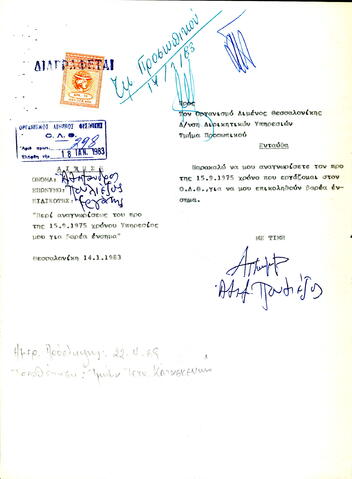 ΔΙΑΓΡΑΦΕΤΑΙ
Τμ. Προσωπικού
14/1/83
ΟΡΓΑΝΙΣΜΟΣ ΛΙΜΕΝΟΣ ΘΕΣ/ΝΙΚΗΣ
Ο.Λ.Θ.
298
18 ΙΑΝ. 1983
ΑΙΤΗΣΗ
ΟΝΟΜΑ:
ΕΠΩΝΥΜΟ:
ΕΙΔΙΚΟΤΗΣ: Εργάτης
"Περί αναγνωρίσεως του προ
της 15.9.1975 χρόνου Υπηρεσίας
μου για βαρέα ένσημα"
Θεσσαλονίκη 14.1.1983
Πρός
Τον Οργανισμό Λιμένος Θεσσαλονίκης
Δ/νση Διοικητικών Υπηρεσιών
Τμήμα Προσωπικού
Ενταύθα
Παρακαλώ να μου αναγνωρίσετε τον προ
της 15.9.1975 χρόνο που εργάζομαι στον
Ο.Λ.Θ., για να μου επικοληθούν βαρέα έν-
σημα.
ΜΕ ΤΙΜΗ
Ημερ. Πρόσληψης: 22.